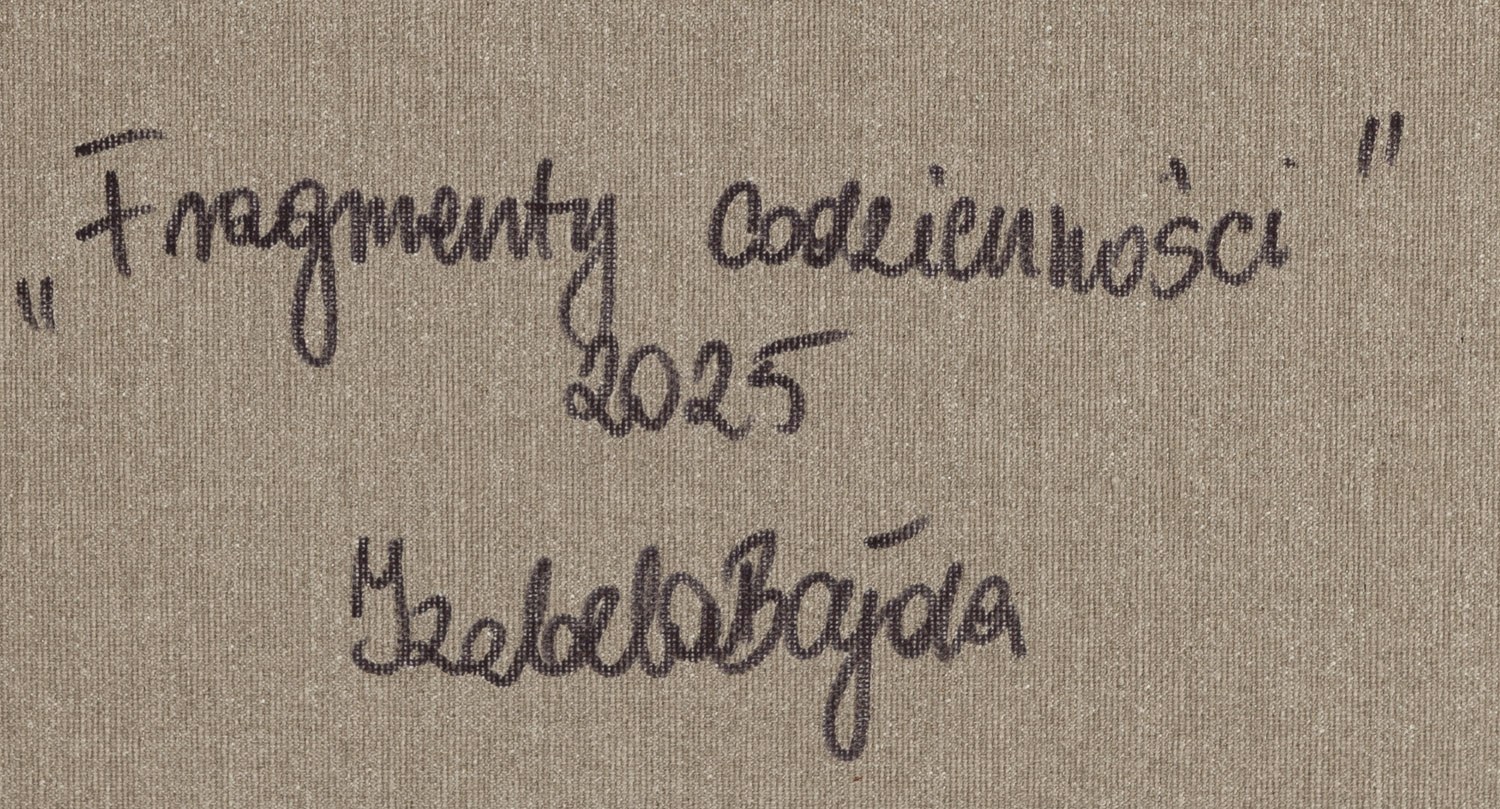 „Fragmenty codzienności"
2025
Izabela Bajda